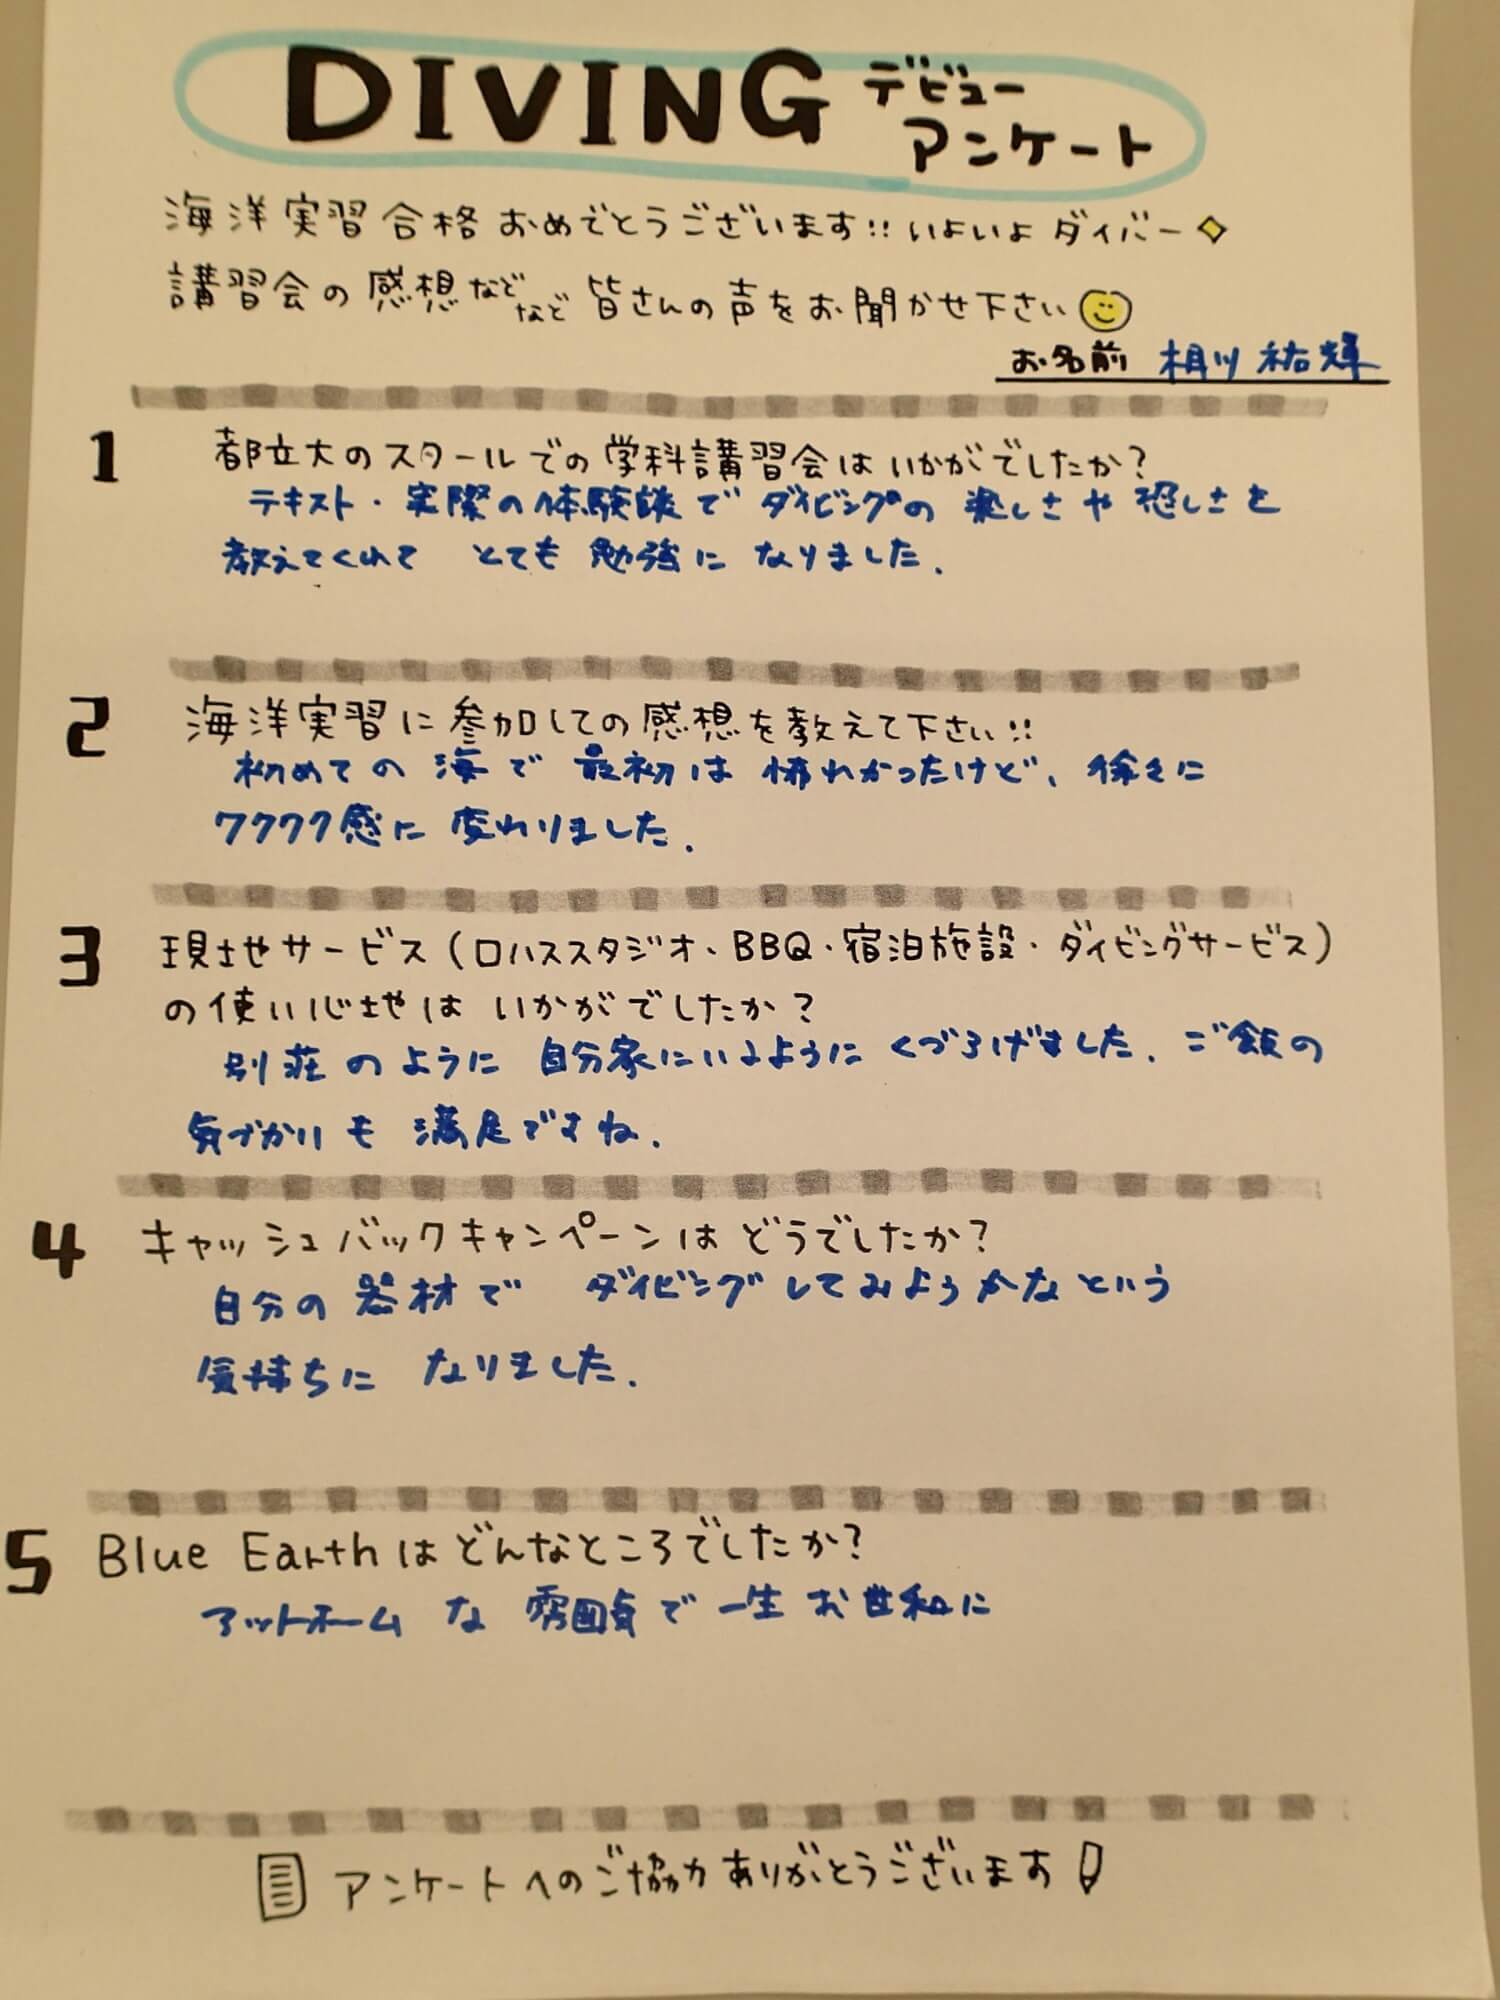 DIVING デビュー
アンケート
海洋実習合格おめでとうございます!! いよいよダイバー
講習会の感想などなど皆さんの声をお聞かせ下さい
お名前 相川 祐輝
1 都立大のスクールでの学科講習会はいかがでしたか?
テキスト・実際の体験談でダイビングの楽しさや恐しさを
教えてくれて とても勉強に なりました.
2 海洋実習に参加しての感想を教えて下さい!!
初めての海で最初は怖わかったけど、徐々に
ワクワク感に変わりました.
3 現地サービス(ロハススタジオ、BBQ・宿泊施設・ダイビングサービス)
の使い心地は いかがでしたか?
別荘のように自分家にいるようにくつろげました. ご飯の
気づかいも満足ですね.
4 キャッシュバックキャンペーンは どうでしたか?
自分の器材で ダイビングしてみようかなという
気持ちに なりました.
5 Blue Earthはどんなところでしたか?
アットホームな雰囲気で一生お世話に
アンケートへのご協力ありがとうございます